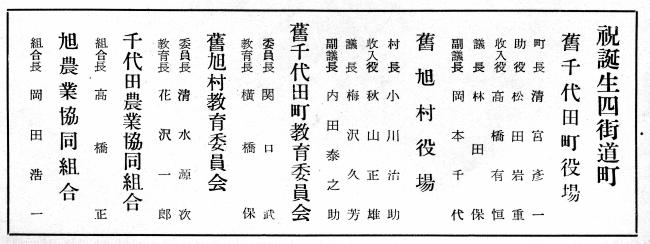 祝誕生四街道町
舊千代田町役場
町長 清宮彦一
助役 松田岩重
収入役 高橋有恒
議長 林田保
副議長 岡本千代
舊旭村役場
村長 小川治助
収入役 秋山正雄
議長 梅沢久芳
副議長 内田泰之助
舊千代田町教育委員会
委員長 関口武
教育長 横橋保
舊旭村教育委員会
委員長 清水源次
教育長 花沢一郎
千代田農業協同組合
組合長 高橋正
旭農業協同組合
組合長 岡田浩一